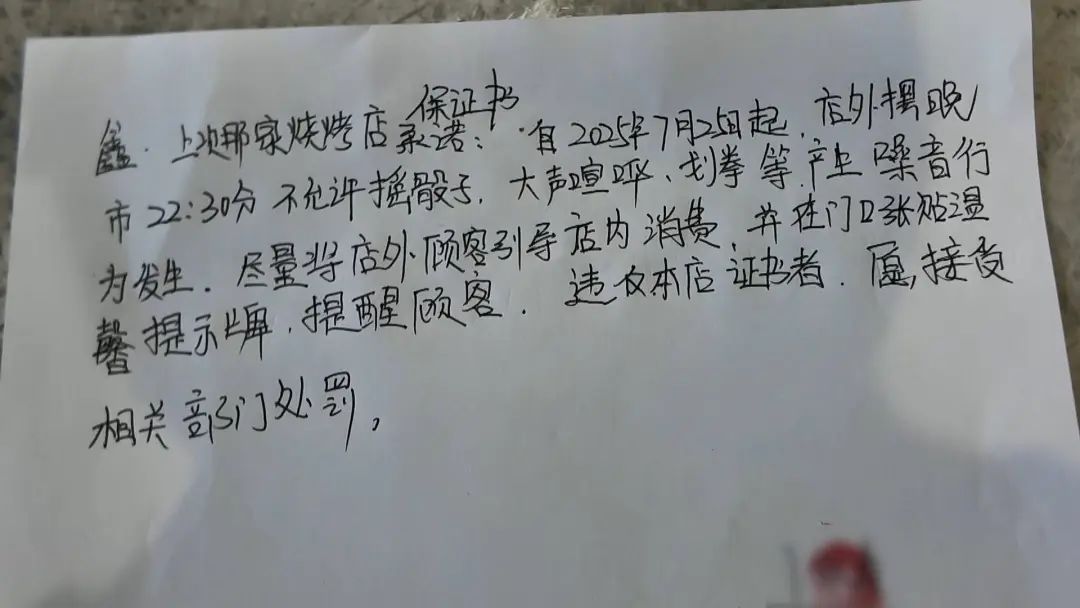 保证书
鑫.上次那家烧烤店承诺：自2025年7月25日起.店外摆晚
市22:30分不允许摇骰子，大声喧哗、划拳等产生噪音行
为发生．尽量将店外顾客引导店内消费，并在门口张贴温
馨提示牌，提醒顾客．违反本店证书者．愿接受
相关部门处罚，